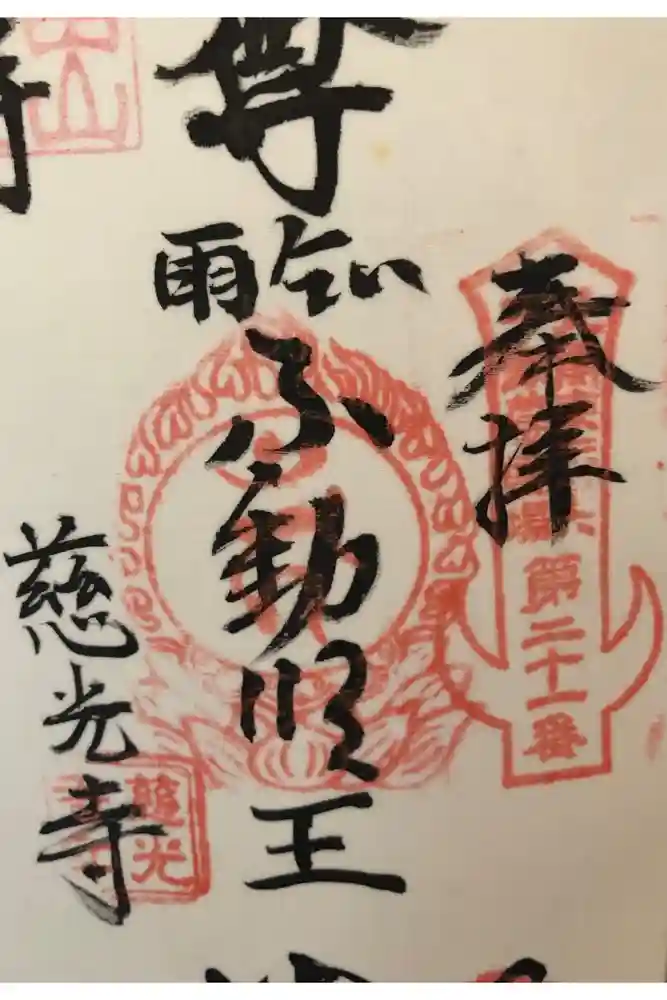 奉拝
第二十一番
尊
雨乞い
不動明王
慈光寺